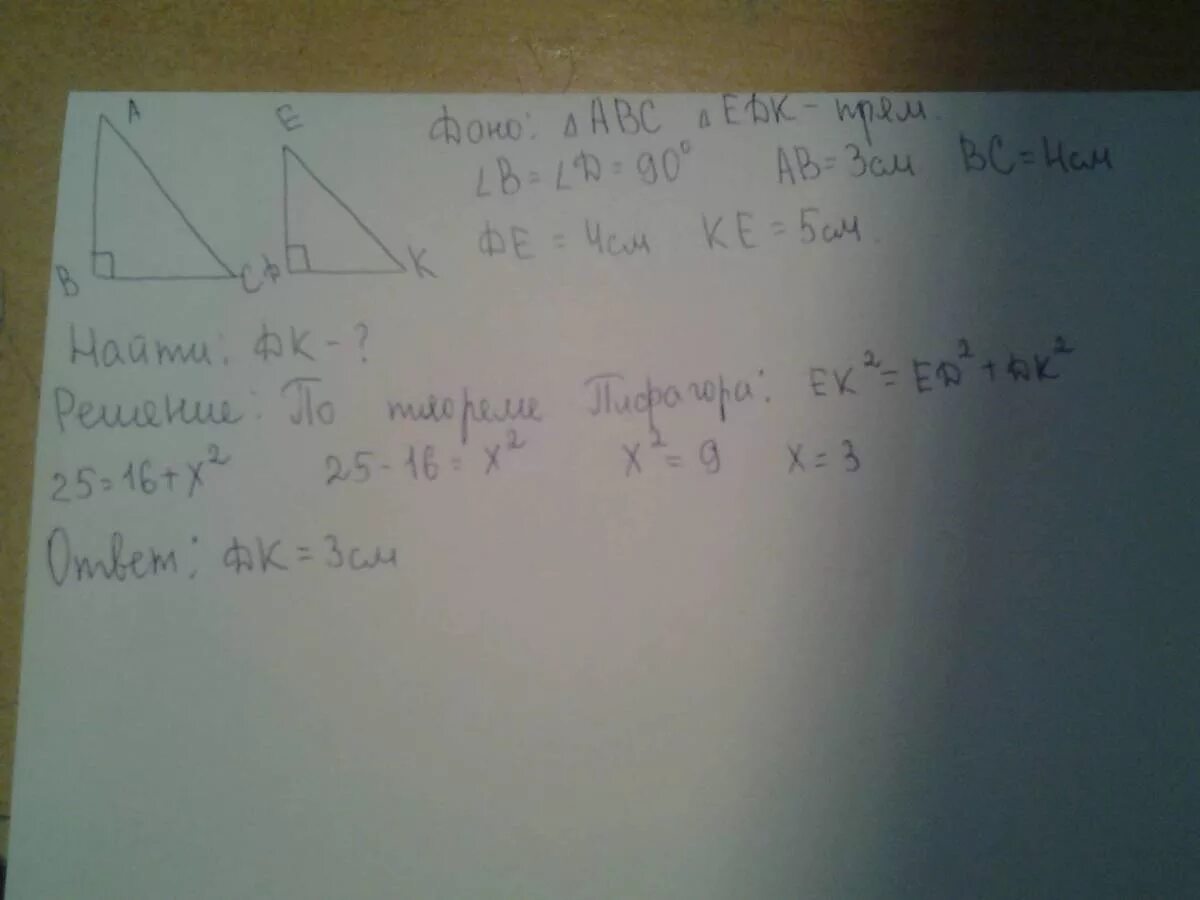 A
E
B
C
D
K
Дано: △ABC △EDK - прям.
∠B = ∠D = 90° AB = 3см BC = 4см
DE = 4см KE = 5см.
Найти: DK - ?
Решение: По теореме Пифагора: EK² = ED² + DK²
25 = 16 + x² 25 - 16 = x² x² = 9 x = 3
Ответ: DK = 3см